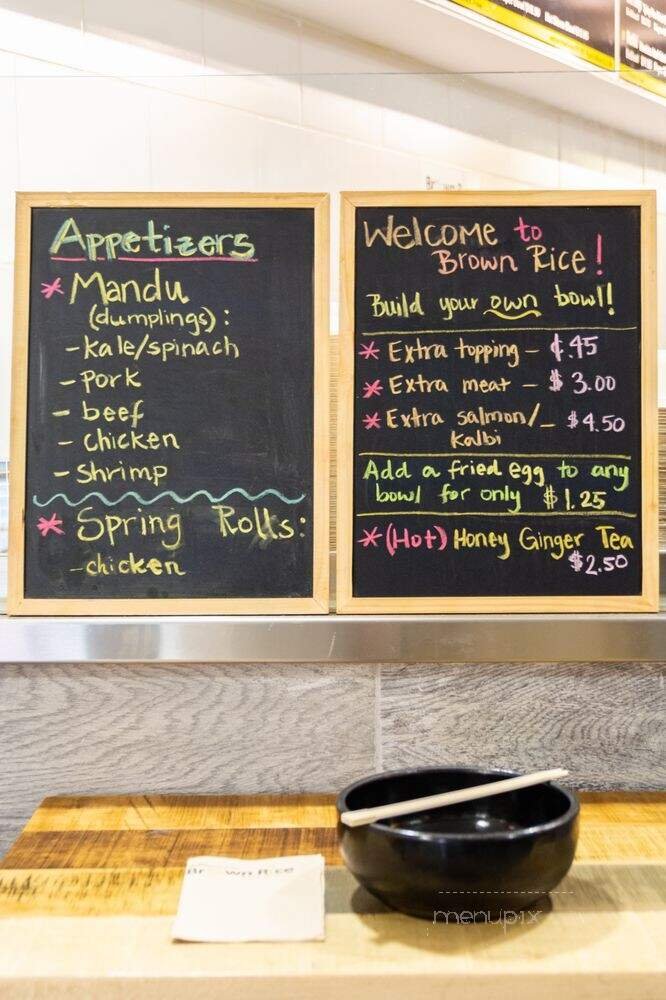 Appetizers
* Mandu
(dumplings):
- kale/spinach
- Pork
- beef
- chicken
- Shrimp
* Spring Rolls:
- chicken
Welcome to
Brown Rice!
Build your own bowl!
* Extra topping - ¢.45
* Extra meat - $3.00
* Extra salmon/ - $4.50
kalbi
Add a fried egg to any
bowl for only $1.25
* (Hot) Honey Ginger Tea
$2.50
Brown Rice
menupix